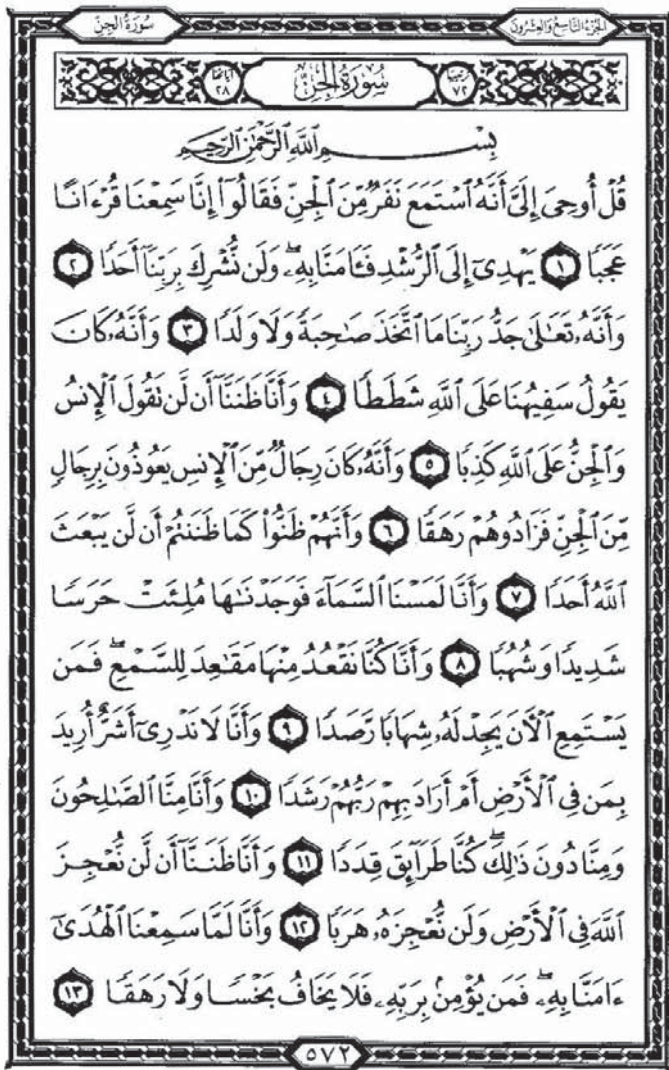 سُورَةُ الجِنّ
الجُزْءُ التَّاسِعُ وَالعِشْرُونَ
ترتيبها ٧٢
سُورَةُ الجِنِّ
آياتها ٢٨
بِسْمِ ٱللَّهِ ٱلرَّحْمَٰنِ ٱلرَّحِيمِ
قُلْ أُوحِىَ إِلَىَّ أَنَّهُ ٱسْتَمَعَ نَفَرٌ مِّنَ ٱلْجِنِّ فَقَالُوٓا۟ إِنَّا سَمِعْنَا قُرْءَانًا
عَجَبًا ١ يَهْدِىٓ إِلَى ٱلرُّشْدِ فَـَٔامَنَّا بِهِۦ ۖ وَلَن نُّشْرِكَ بِرَبِّنَآ أَحَدًا ٢
وَأَنَّهُۥ تَعَٰلَىٰ جَدُّ رَبِّنَا مَا ٱتَّخَذَ صَٰحِبَةً وَلَا وَلَدًا ٣ وَأَنَّهُۥ كَانَ
يَقُولُ سَفِيهُنَا عَلَى ٱللَّهِ شَطَطًا ٤ وَأَنَّا ظَنَنَّآ أَن لَّن تَقُولَ ٱلْإِنسُ
وَٱلْجِنُّ عَلَى ٱللَّهِ كَذِبًا ٥ وَأَنَّهُۥ كَانَ رِجَالٌ مِّنَ ٱلْإِنسِ يَعُوذُونَ بِرِجَالٍ
مِّنَ ٱلْجِنِّ فَزَادُوهُمْ رَهَقًا ٦ وَأَنَّهُمْ ظَنُّوا۟ كَمَا ظَنَنتُمْ أَن لَّن يَبْعَثَ
ٱللَّهُ أَحَدًا ٧ وَأَنَّا لَمَسْنَا ٱلسَّمَآءَ فَوَجَدْنَٰهَا مُلِئَتْ حَرَسًا
شَدِيدًا وَشُهُبًا ٨ وَأَنَّا كُنَّا نَقْعُدُ مِنْهَا مَقَٰعِدَ لِلسَّمْعِ ۖ فَمَن
يَسْتَمِعِ ٱلْـَٔانَ يَجِدْ لَهُۥ شِهَابًا رَّصَدًا ٩ وَأَنَّا لَا نَدْرِىٓ أَشَرٌّ أُرِيدَ
بِمَن فِى ٱلْأَرْضِ أَمْ أَرَادَ بِهِمْ رَبُّهُمْ رَشَدًا ١٠ وَأَنَّا مِنَّا ٱلصَّٰلِحُونَ
وَمِنَّا دُونَ ذَٰلِكَ ۖ كُنَّا طَرَآئِقَ قِدَدًا ١١ وَأَنَّا ظَنَنَّآ أَن لَّن نُّعْجِزَ
ٱللَّهَ فِى ٱلْأَرْضِ وَلَن نُّعْجِزَهُۥ هَرَبًا ١٢ وَأَنَّا لَمَّا سَمِعْنَا ٱلْهُدَىٰٓ
ءَامَنَّا بِهِۦ ۖ فَمَن يُؤْمِنۢ بِرَبِّهِۦ فَلَا يَخَافُ بَخْسًا وَلَا رَهَقًا ١٣
٥٧٢